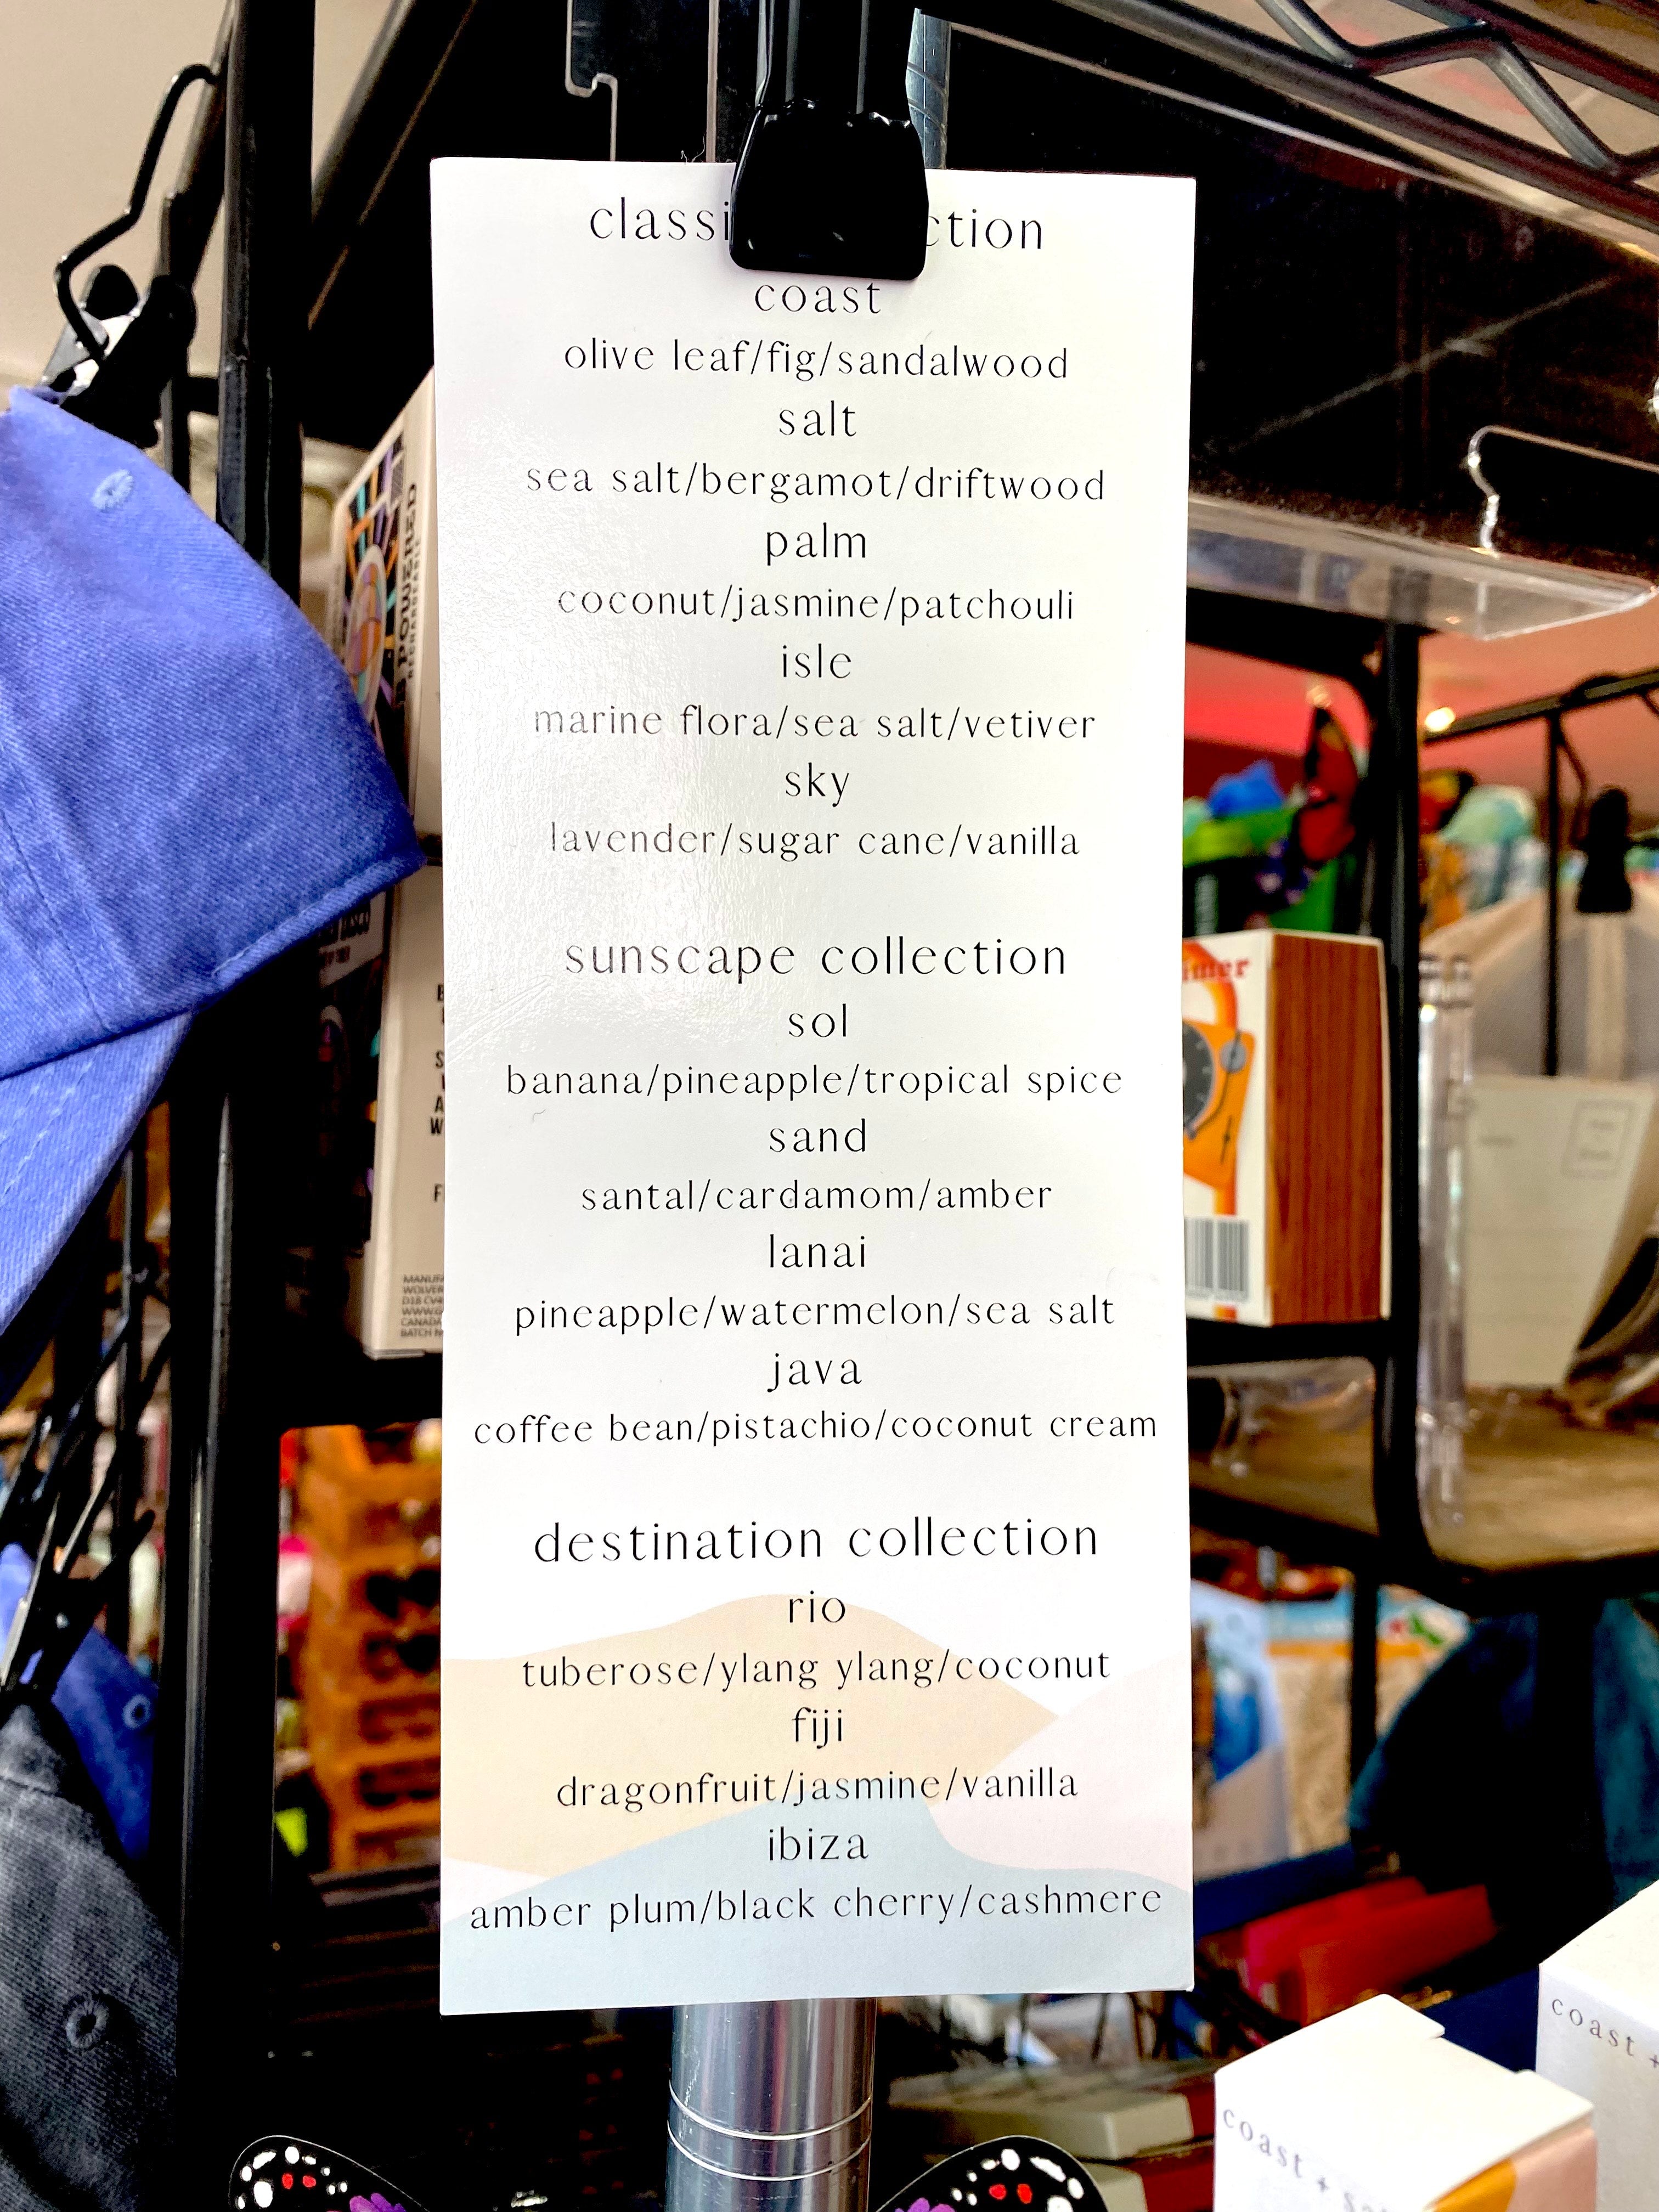 classi ction
coast
olive leaf/fig/sandalwood
salt
sea salt/bergamot/driftwood
palm
coconut/jasmine/patchouli
isle
marine flora/sea salt/vetiver
sky
lavender/sugar cane/vanilla
sunscape collection
sol
banana/pineapple/tropical spice
sand
santal/cardamom/amber
lanai
pineapple/watermelon/sea salt
java
coffee bean/pistachio/coconut cream
destination collection
rio
tuberose/ylang ylang/coconut
fiji
dragonfruit/jasmine/vanilla
ibiza
amber plum/black cherry/cashmere
POWERED
coast +
coast +